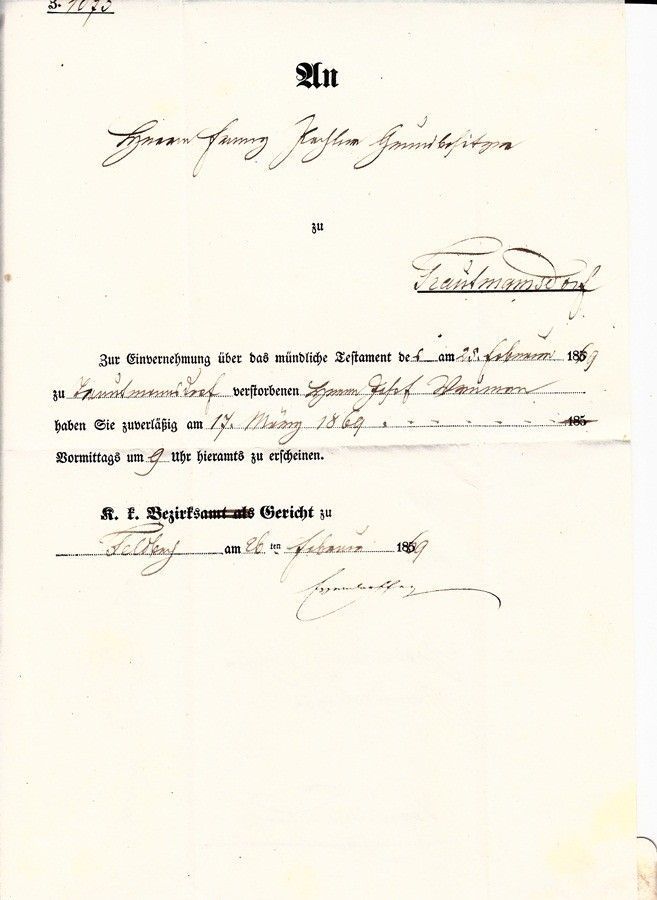 Z. 1073
An
Herrn Franz Grundbesitzer
zu
Trautmannsdorf
Zur Einvernehmung über das mündliche Testament des am 25. Februar 1869
zu Trautmannsdorf verstorbenen Herrn Josef
haben Sie zuverläßig am 17. März 1869 185
Vormittags um 9 Uhr hieramts zu erscheinen.
K. k. Bezirksamt als Gericht zu
Feldbach am 26ten Februar 1869